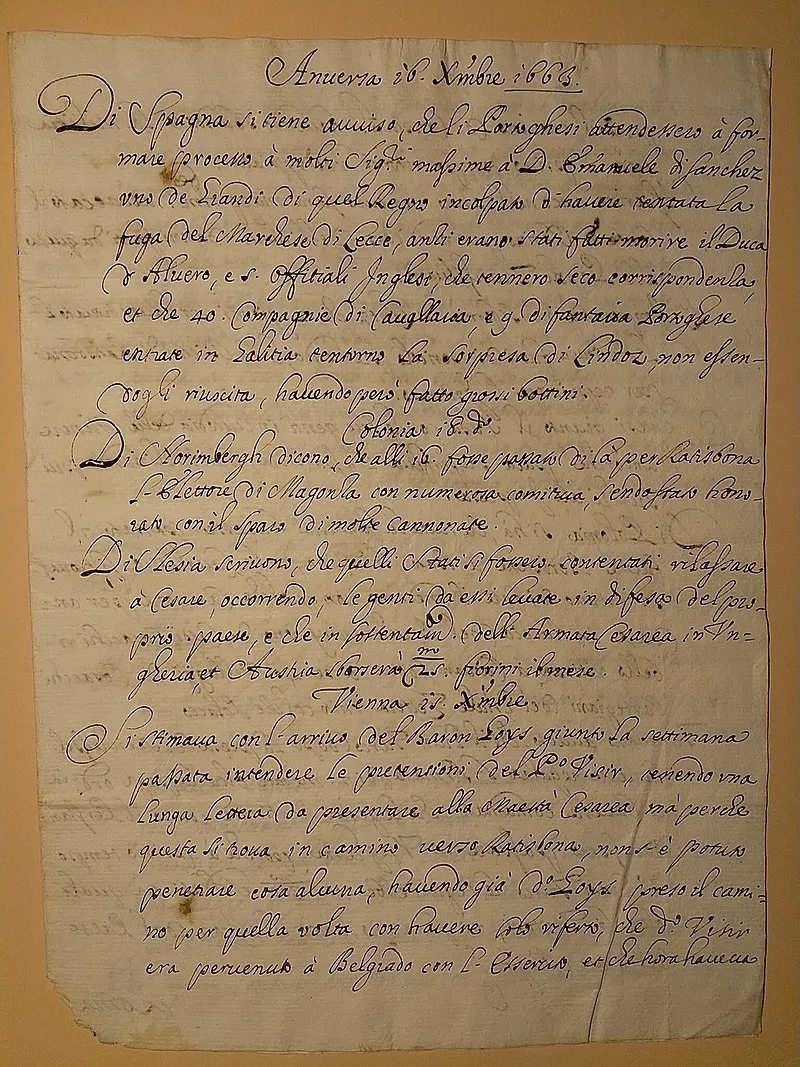 Anuersa 16. Xmbre 1663.
Di Spagna si tiene auuiso, che li Portoghesi attendessero à for-
mare processo à molti Sigri massime à D. Emanuele di Sanchez
vno de Grandi di quel Regno incolpato d'hauere tentata la
fuga del Marchese di Lecce, anzi erano stati fatti morire il Duca
d'Aluero, e 5. offitiali Inglesi, che tennero seco corrispondenza,
et che 40. Compagnie di Cauallaria, e 9. di fantaria Portoghese
entrate in Galitia tentorno la sorpresa di Lindoz, non essen-
dogli riuscita, hauendo però fatto grossi bottini.
Colonia 18. do
Di Norimbergh dicono, che alli 16 fosse passato di là per Ratisbona
l'Elettore di Magonza con numerosa comitiua, sendo stato hono-
rato con il sparo di molte cannonate.
Di Slesia scriuono, che quelli Stati si fossero contentati rilassare
à Cesare, occorrendo, le genti da essi leuate in difesa del pro-
prio paese, e che in sostentato dell'Armata Cesarea in Vn=
gheria, et Austria sborserà 25.m fiorini il mese.
Vienna 15. Xmbre
Si stimaua con l'arriuo del Baron Goys giunto la settimana
passata intendere le pretensioni del Po Visir, tenendo vna
lunga lettera da presentare alla Maestà Cesarea mà perche
questa si troua in camino verso Ratisbona, non s'è potuto
penetrare cosa alcuna, hauendo già do Goys preso il cami=
no per quella volta con hauere solo riferto, che do Visir
era peruenuto à Belgrado con l'Essercito, et che hora haueua